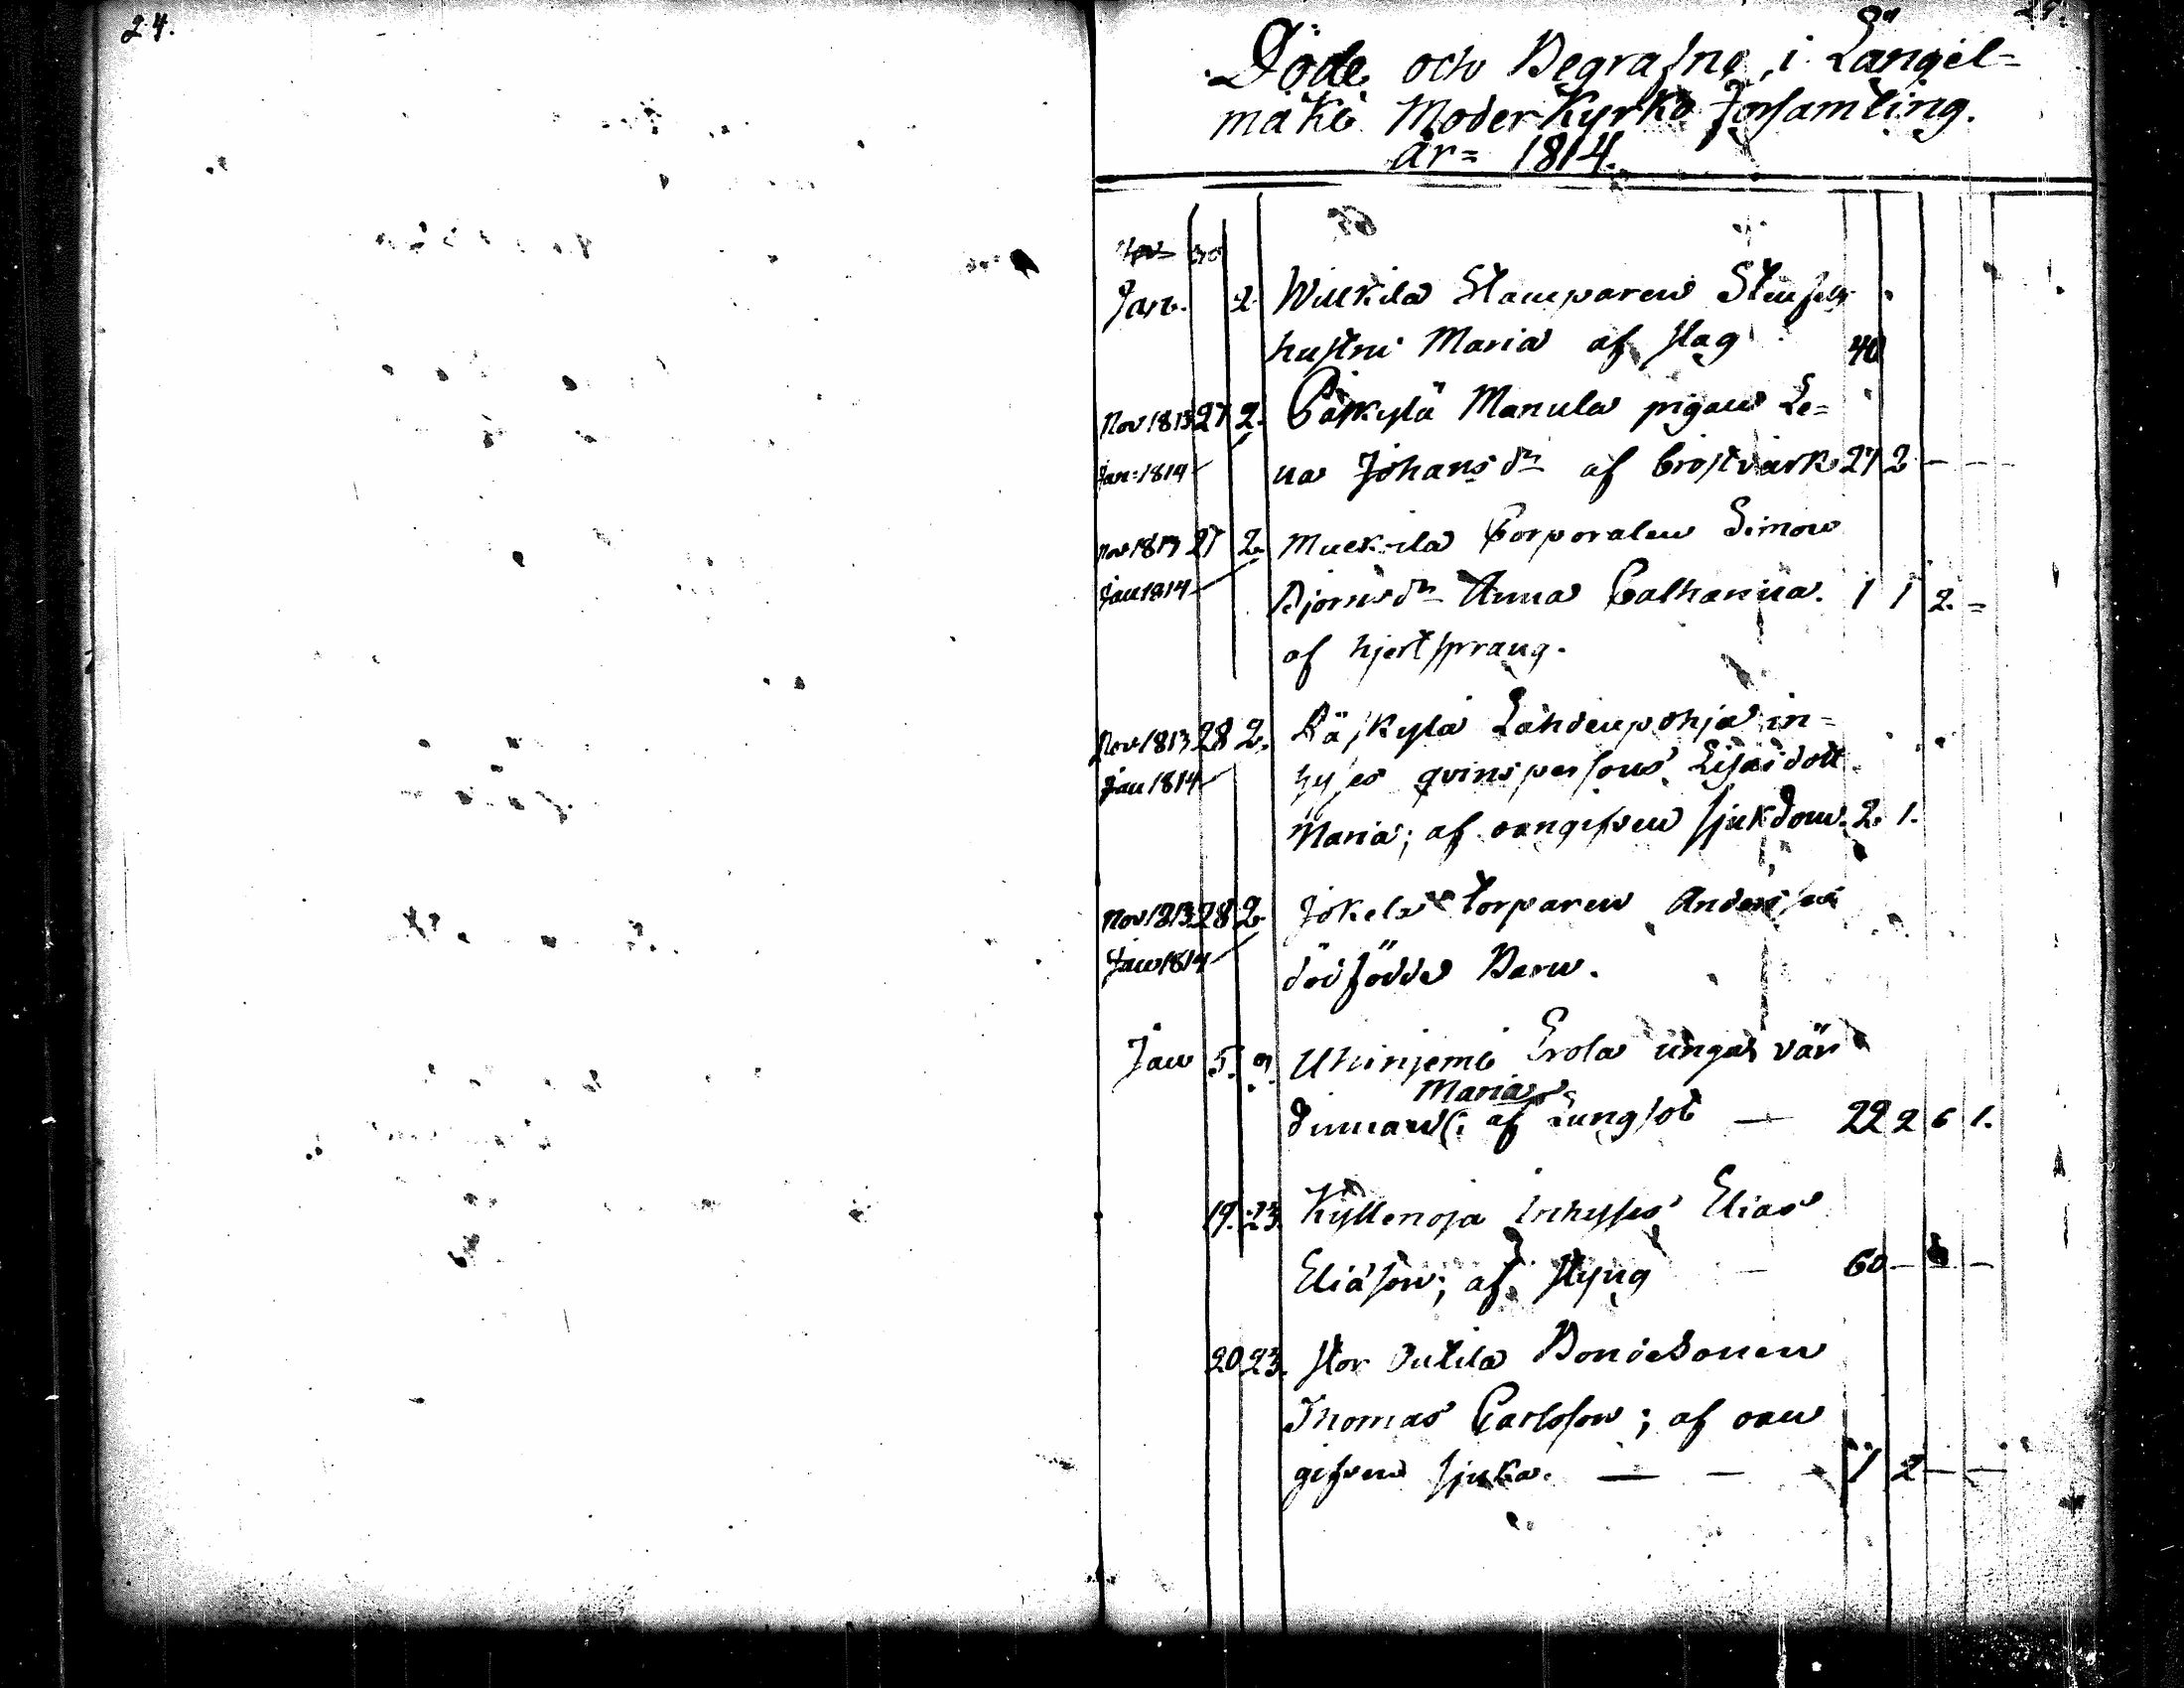 24.
25.
Döde och Begrafne, i Längel=
mäki Moderkyrko Församling.
år= 1814.
Jan. 2 Wilkila Stamparen
hustru Maria af slag 40
Nov 1813 27 2. Päskylä Manula pigan Le=
Jan: 1814 na Johans dr af bröstvärk 27 2 - - -
Nov 1813 27 2. Muckila Corporalen Simon
Jan 1814 Björns dr Anna Catharina. 1 1 2. =
af hjertsprång.
Nov 1813 28 2. Päskylä Lahdenpohja in=
Jan 1814 hyses qvinspersons dott
Maria; af oangifven sjukdom. 2. 1.
Nov 1813 28 2. Jokela torparen Anders
Jan 1814 dödfödde Barn.
Jan 5. 9. Uhiniemi Erola unga vär
Maria
dinnan (: af Lungsot — 22 2 6 1.
19. 23. Kyllenoja Inhyses Elias
Eliasson; af styng — 60 - -
20 23. Stor Outila Bondesonen
Thomas Carlsson; af oan
gifven sjuka. — — - 7 2 — —